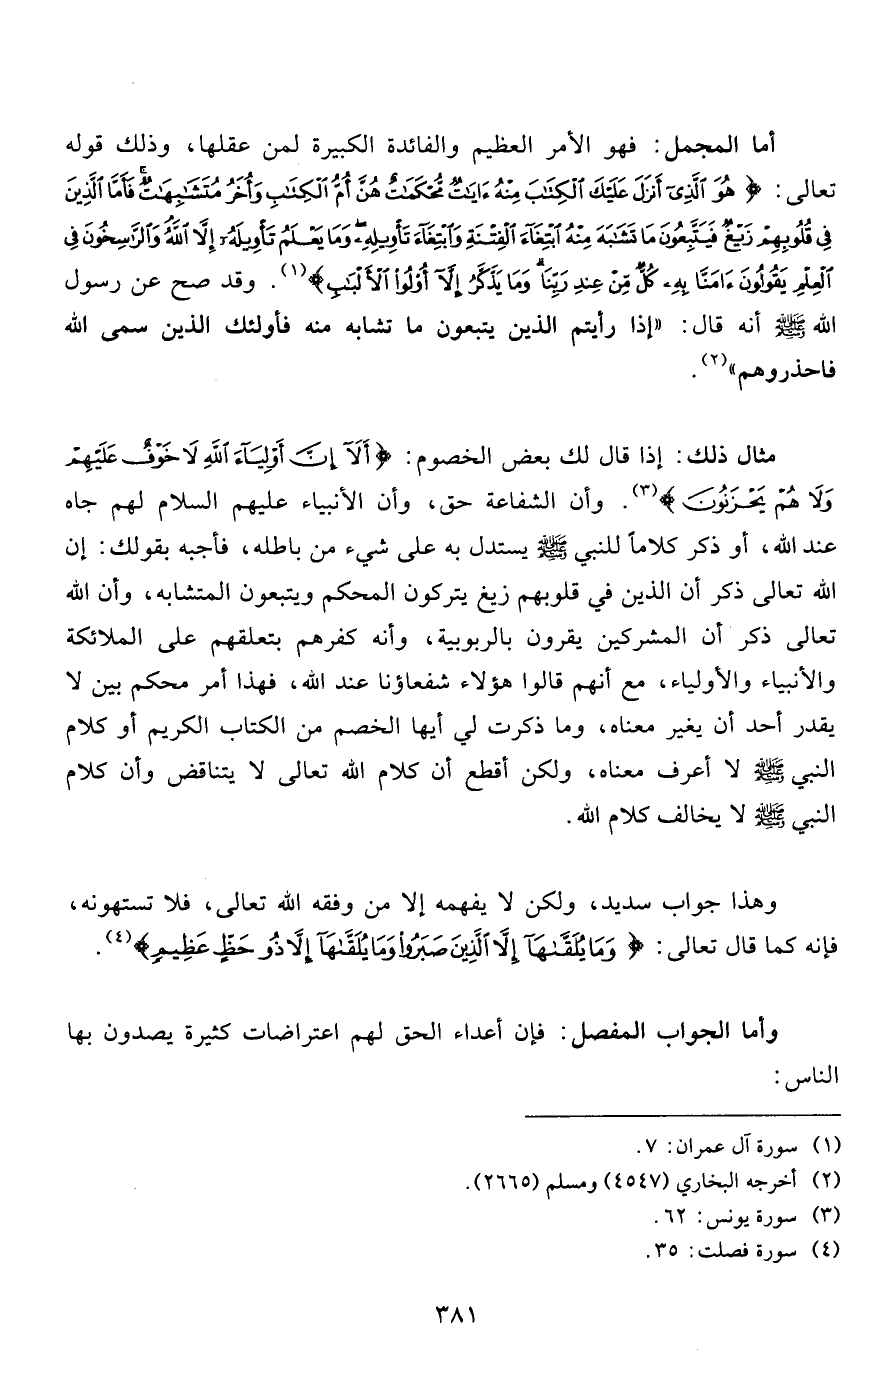 أما المجمل: فهو الأمر العظيم والفائدة الكبيرة لمن عقلها، وذلك قوله
تعالى: ﴿هُوَ ٱلَّذِىٓ أَنزَلَ عَلَيْكَ ٱلْكِتَٰبَ مِنْهُ ءَايَٰتٌ مُّحْكَمَٰتٌ هُنَّ أُمُّ ٱلْكِتَٰبِ وَأُخَرُ مُتَشَٰبِهَٰتٌ ۖ فَأَمَّا ٱلَّذِينَ
فِى قُلُوبِهِمْ زَيْغٌ فَيَتَّبِعُونَ مَا تَشَٰبَهَ مِنْهُ ٱبْتِغَآءَ ٱلْفِتْنَةِ وَٱبْتِغَآءَ تَأْوِيلِهِۦ ۗ وَمَا يَعْلَمُ تَأْوِيلَهُۥٓ إِلَّا ٱللَّهُ ۗ وَٱلرَّٰسِخُونَ فِى
ٱلْعِلْمِ يَقُولُونَ ءَامَنَّا بِهِۦ كُلٌّ مِّنْ عِندِ رَبِّنَا ۗ وَمَا يَذَّكَّرُ إِلَّآ أُوْلُوا۟ ٱلْأَلْبَٰبِ﴾(١). وقد صح عن رسول
الله ﷺ أنه قال: «إذا رأيتم الذين يتبعون ما تشابه منه فأولئك الذين سمى الله
فاحذروهم»(٢).
مثال ذلك: إذا قال لك بعض الخصوم: ﴿أَلَآ إِنَّ أَوْلِيَآءَ ٱللَّهِ لَا خَوْفٌ عَلَيْهِمْ
وَلَا هُمْ يَحْزَنُونَ﴾(٣). وأن الشفاعة حق، وأن الأنبياء عليهم السلام لهم جاه
عند الله، أو ذكر كلاماً للنبي ﷺ يستدل به على شيء من باطله، فأجبه بقولك: إن
الله تعالى ذكر أن الذين في قلوبهم زيغ يتركون المحكم ويتبعون المتشابه، وأن الله
تعالى ذكر أن المشركين يقرون بالربوبية، وأنه كفرهم بتعلقهم على الملائكة
والأنبياء والأولياء، مع أنهم قالوا هؤلاء شفعاؤنا عند الله، فهذا أمر محكم بين لا
يقدر أحد أن يغير معناه، وما ذكرت لي أيها الخصم من الكتاب الكريم أو كلام
النبي ﷺ لا أعرف معناه، ولكن أقطع أن كلام الله تعالى لا يتناقض وأن كلام
النبي ﷺ لا يخالف كلام الله.
وهذا جواب سديد، ولكن لا يفهمه إلا من وفقه الله تعالى، فلا تستهونه،
فإنه كما قال تعالى: ﴿وَمَا يُلَقَّىٰهَآ إِلَّا ٱلَّذِينَ صَبَرُوا۟ وَمَا يُلَقَّىٰهَآ إِلَّا ذُو حَظٍّ عَظِيمٍ﴾(٤).
وأما الجواب المفصل: فإن أعداء الحق لهم اعتراضات كثيرة يصدون بها
الناس:
(١) سورة آل عمران: ٧.
(٢) أخرجه البخاري (٤٥٤٧) ومسلم (٢٦٦٥).
(٣) سورة يونس: ٦٢.
(٤) سورة فصلت: ٣٥.
٣٨١